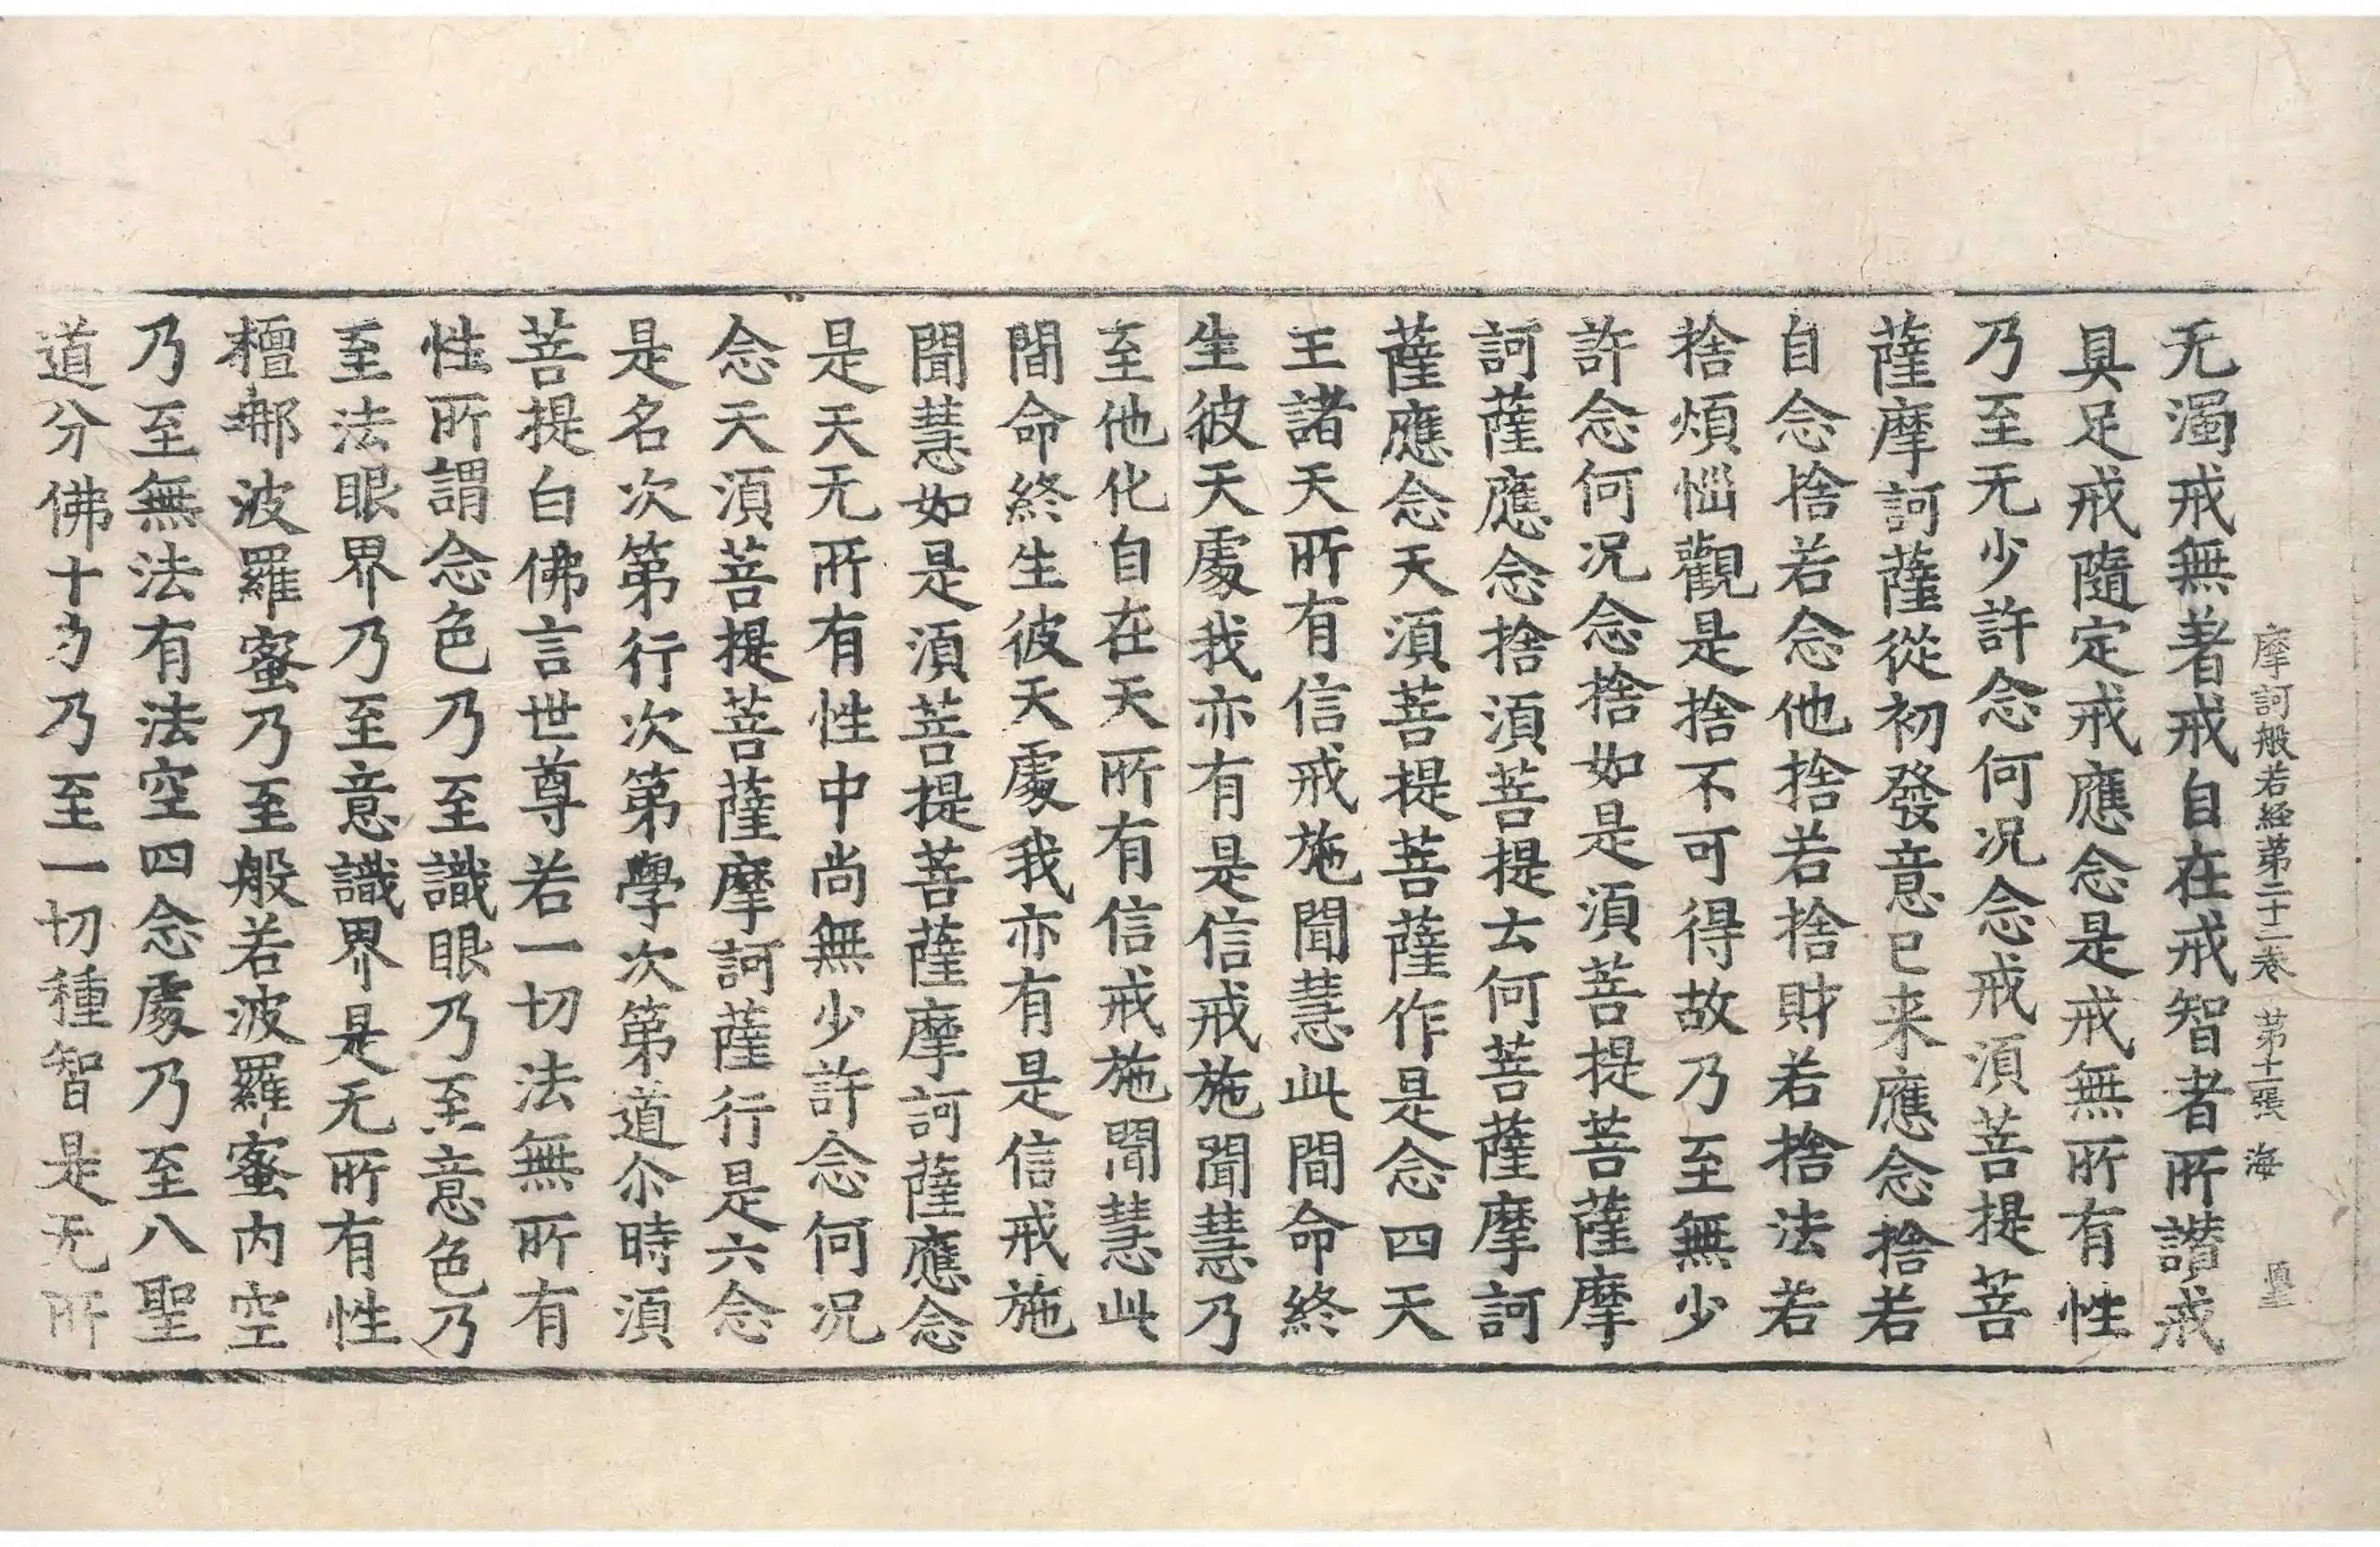 摩訶般若経第二十二卷 第十一張 海
无濁戒無著戒自在戒智者所讃戒
具足戒隨定戒應念是戒無所有性
乃至无少許念何况念戒須菩提菩
薩摩訶薩從初發意已来應念捨若
自念捨若念他捨若捨財若捨法若
捨煩惱觀是捨不可得故乃至無少
許念何况念捨如是須菩提菩薩摩
訶薩應念捨須菩提云何菩薩摩訶
薩應念天須菩提菩薩作是念四天
王諸天所有信戒施聞慧此間命終
生彼天處我亦有是信戒施聞慧乃
至他化自在天所有信戒施聞慧此
間命終生彼天處我亦有是信戒施
聞慧如是須菩提菩薩摩訶薩應念
是天无所有性中尚無少許念何况
念天須菩提菩薩摩訶薩行是六念
是名次第行次第學次第道尒時須
菩提白佛言世尊若一切法無所有
性所謂念色乃至識眼乃至意色乃
至法眼界乃至意識界是无所有性
檀那波羅蜜乃至般若波羅蜜内空
乃至無法有法空四念處乃至八聖
道分佛十力乃至一切種智是无所